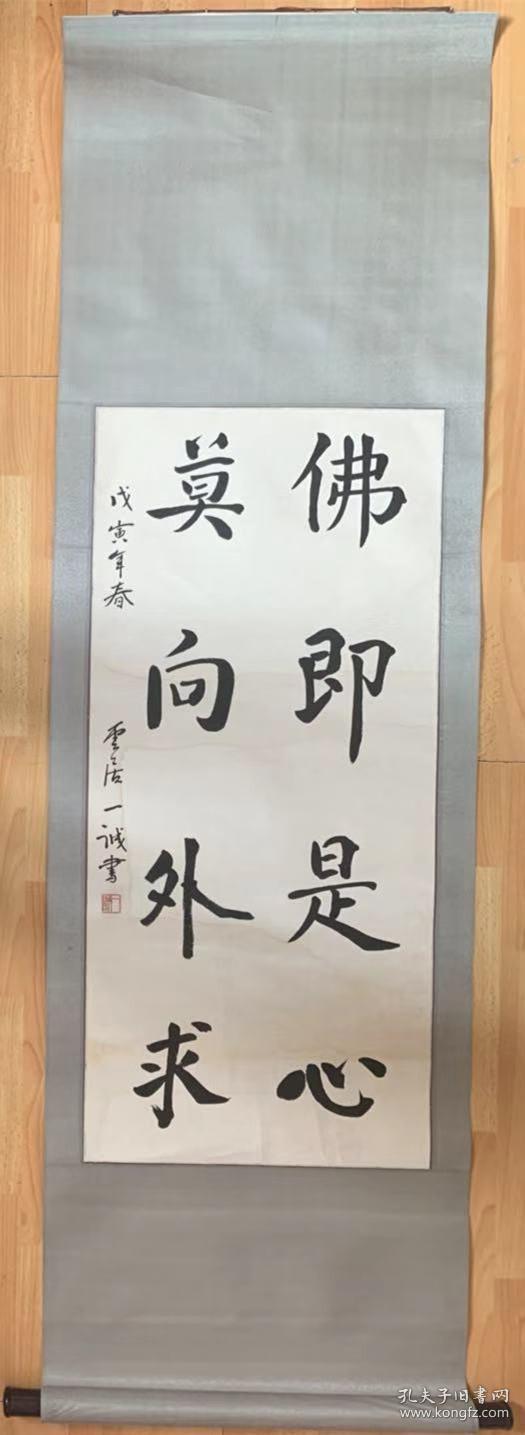 佛即是心
莫向外求
戊寅年春
雲居一诚書
孔夫子旧書网
www.kongfz.com